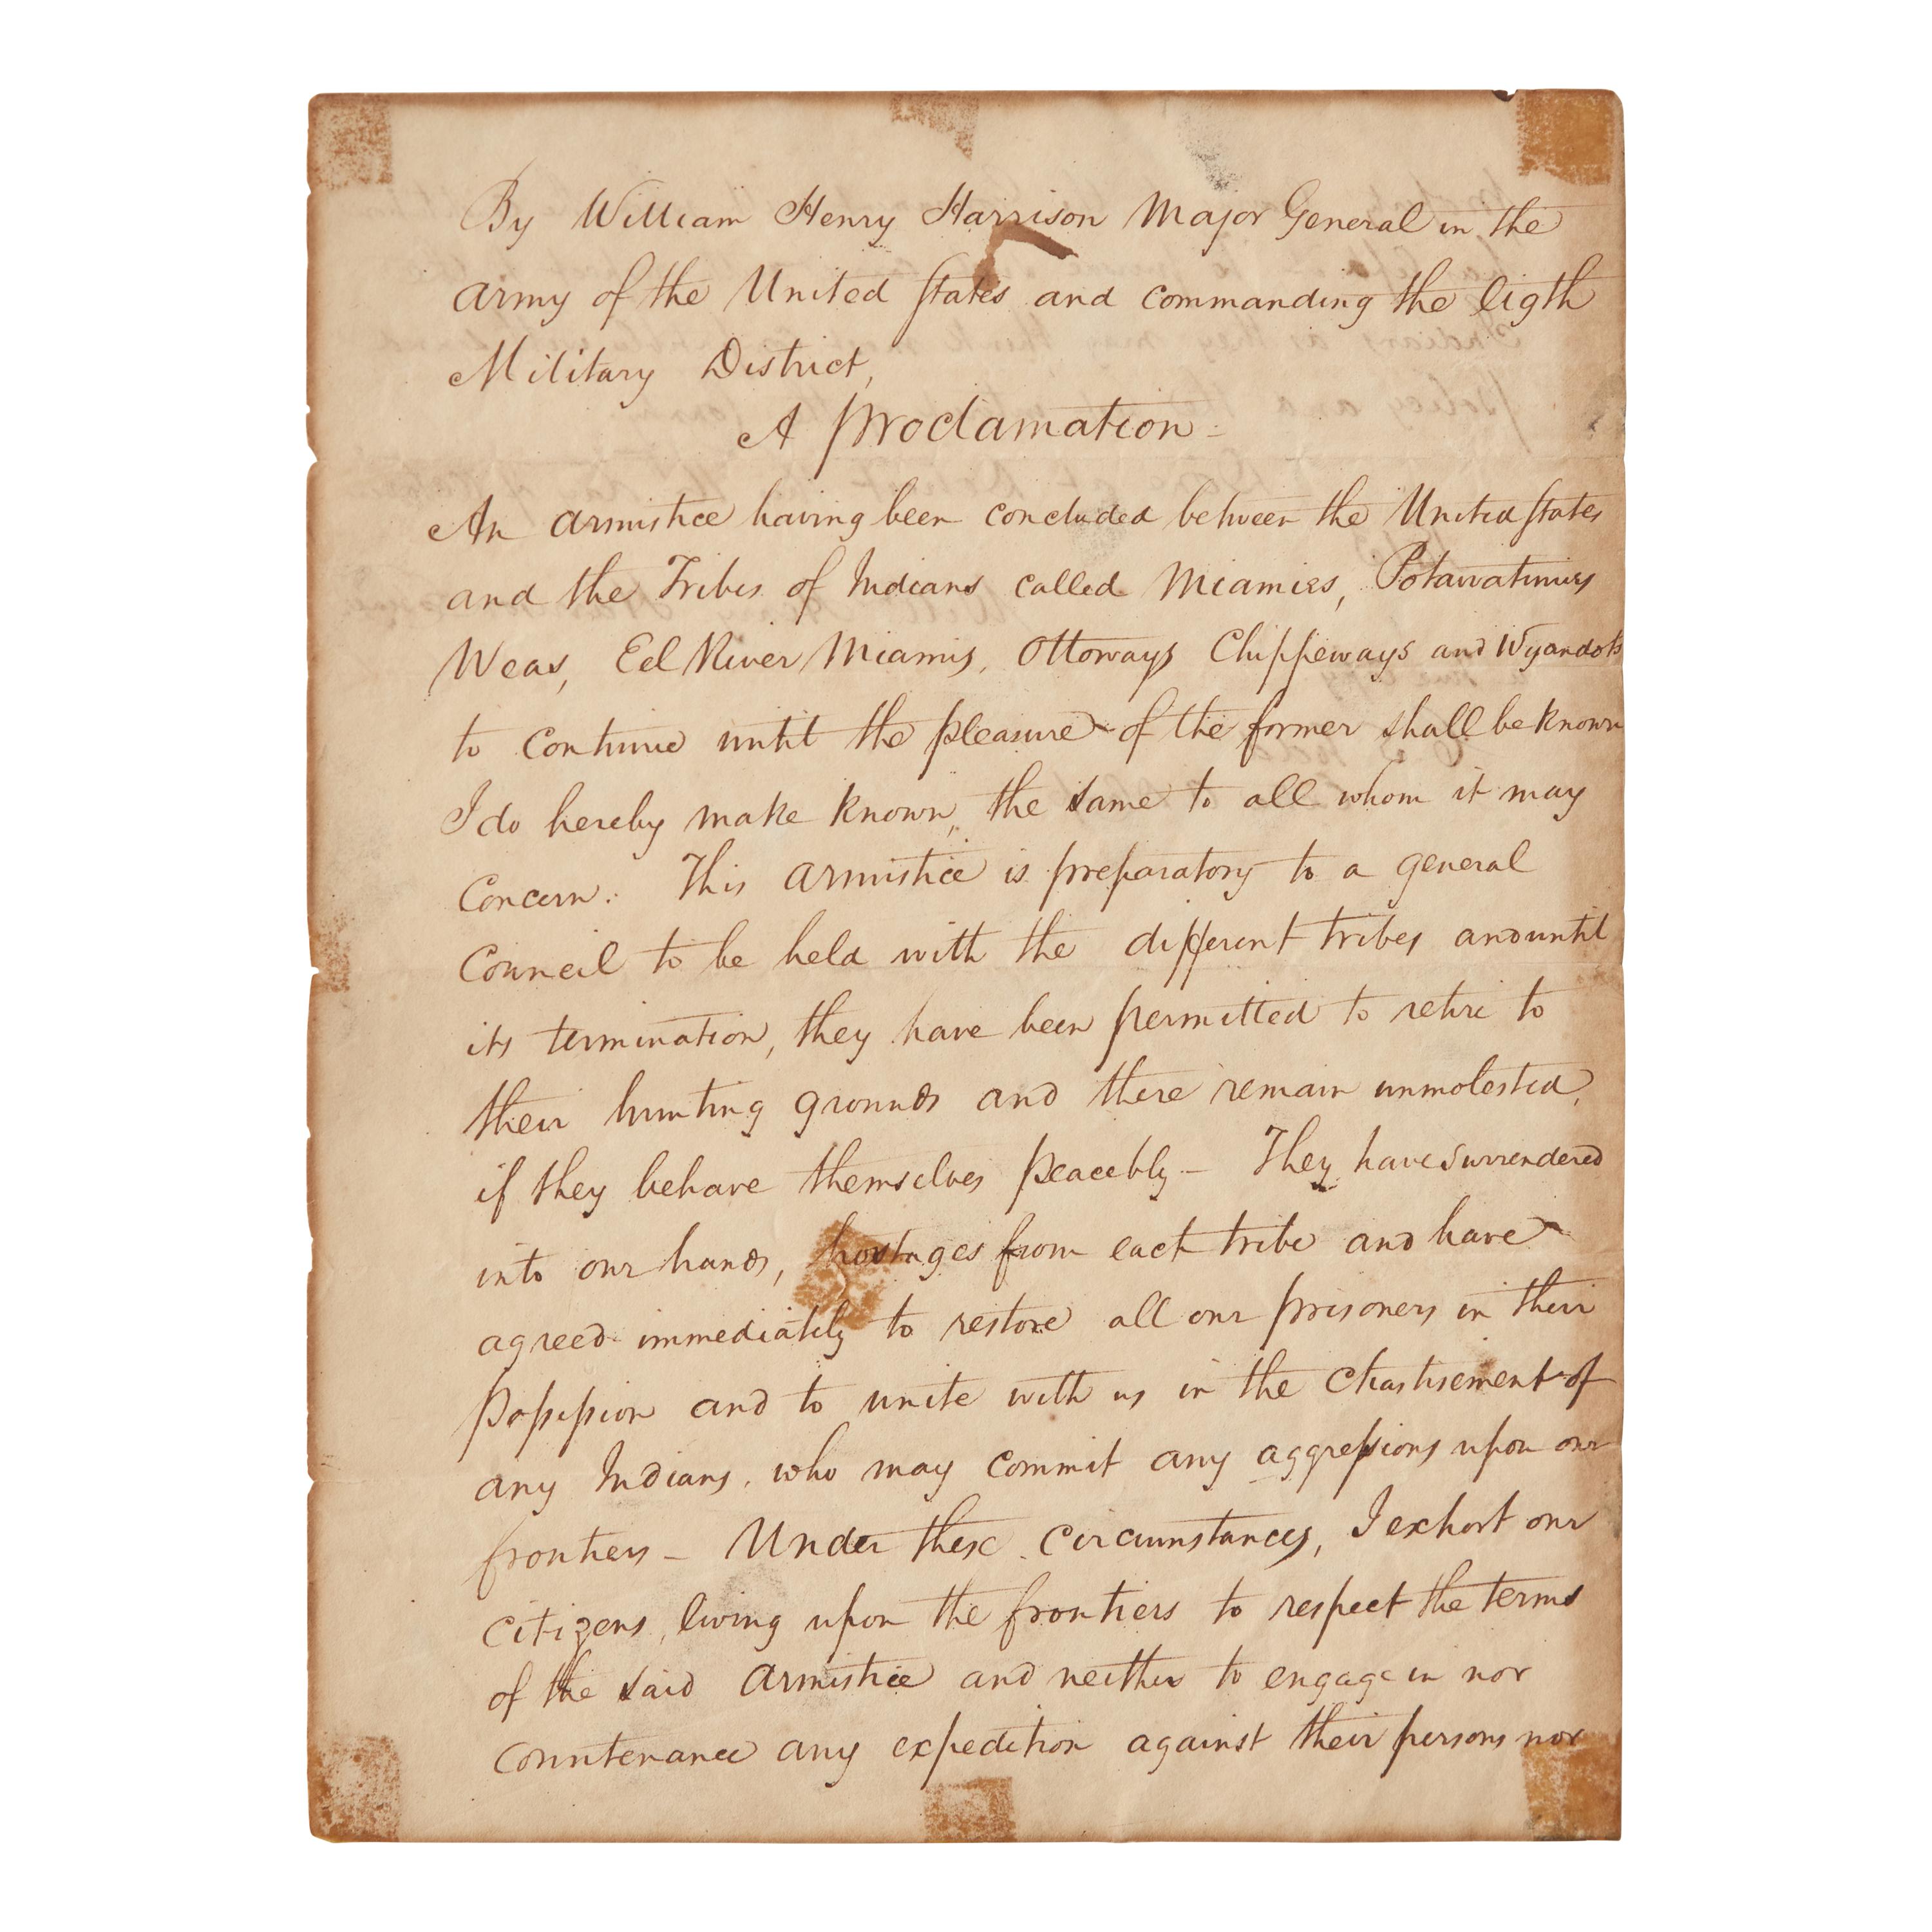 By William Henry Harrison Major General in the
Army of the United States and commanding the ligth
Military District,
A Proclamation -
An Armistice having been concluded between the United States
and the Tribes of Indians called Miamies, Potawatimies
Weas, Eel River Miamis, Ottoways Chippeways and Wyandots
to continue until the pleasure of the former shall be known
I do hereby make known, the same to all whom it may
Concern. This Armistice is preparatory to a general
Council to be held with the different tribes and until
its termination, they have been permitted to retire to
their hunting grounds and there remain unmolested,
if they behave themselves peacebly - They have surrendered
into our hands, hostages from each tribe and have
agreed immediately to restore all our prisoners in their
Possession and to unite with us in the Chastisement of
any Indians, who may commit any aggressions upon our
frontiers - Under these circumstances, I exhort our
Citizens, living upon the frontiers to respect the terms
of the said Armistice and neither to engage in nor
Countenance any expedition against their persons nor